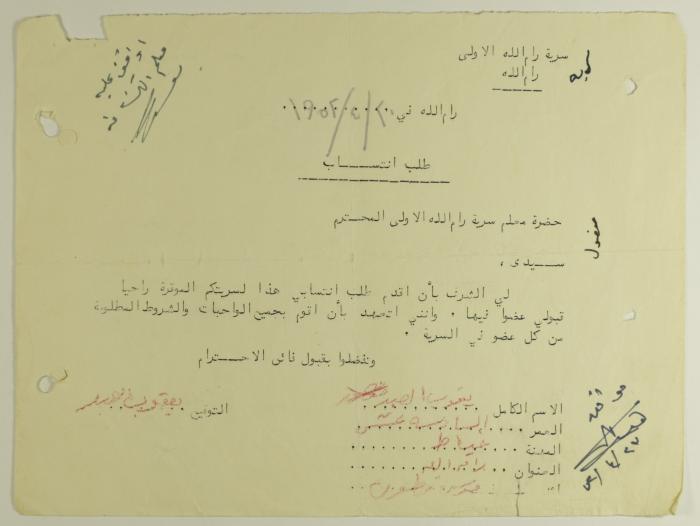 سرية رام الله الاولى
رام الله
سرية
اوافق عليه
رام الله في ٢٠/٤/١٩٥٢
طلب انتســـاب
حضرة معلم سرية رام الله الاولى المحــترم
مقبول
ســيدى ،
لي الشرف بأن اقدم طلب انتسابي هذا لسريتكم الموقرة راجيا
قبولي عضوا فيها . وانني اتعهد بأن اقوم بجميع الواجبات والشروط المطلوبة
من كل عضو في السرية .
وتفضلوا بقبول فائق الاحــترام
الاسم الكامل يعقوب
التوقيع يعقوب
العمر السادسة عشر
المهنة خياط
العنوان رام الله
موافق